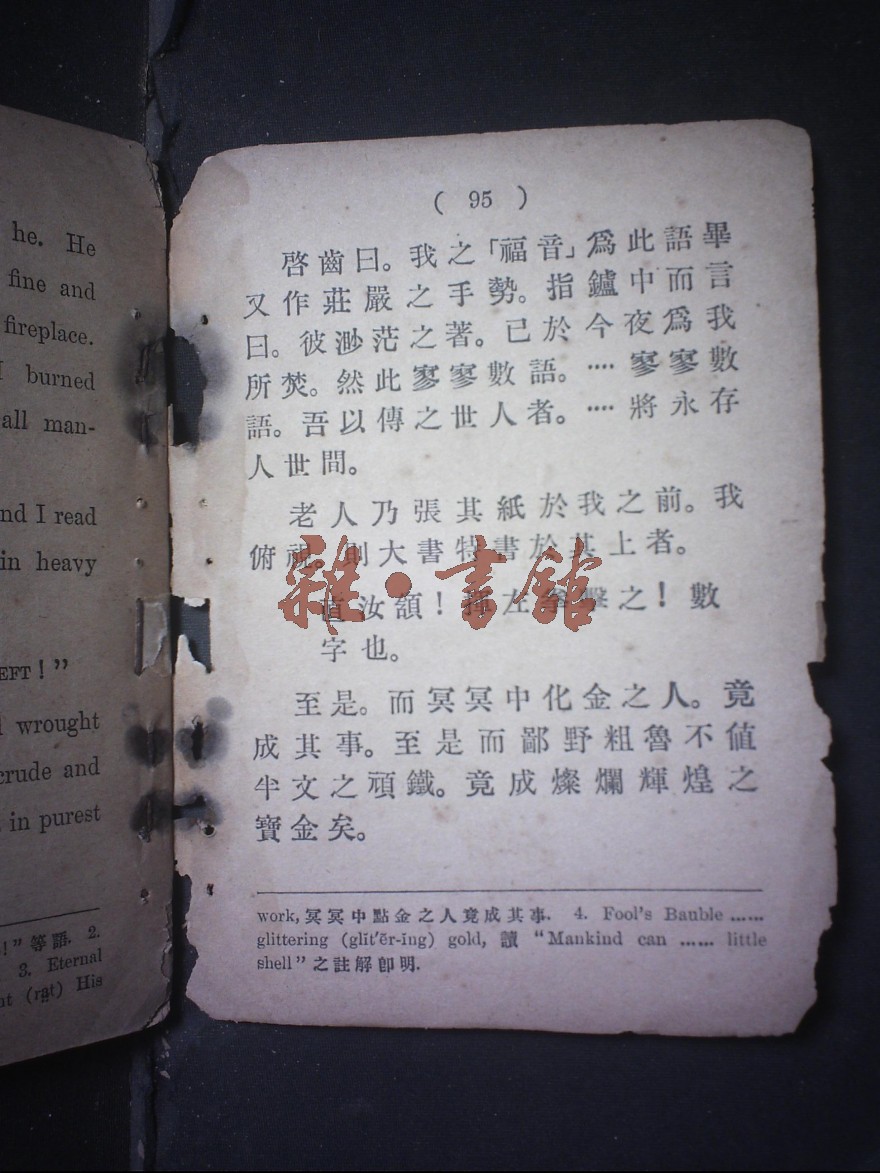 he. He
fine and
fireplace.
I burned
all man-
nd I read
in heavy
EFT!”
l wrought
crude and
in purest
!”等語. 2.
3. Eternal
(rat) His
( 95 )
啓齒曰。我之「福音」爲此語畢
又作莊嚴之手勢。指鑪中而言
曰。彼渺茫之著。已於今夜爲我
所焚。然此寥寥數語。….寥寥數
語。吾以傳之世人者。….將永存
人世間。
老人乃張其紙於我之前。我
俯視。則大書特書於其上者。
直汝頷!揮左拳擊之!數
字也。
至是。而冥冥中化金之人。竟
成其事。至是而鄙野粗魯不値
半文之頑鐵。竟成燦爛輝煌之
寶金矣。
work, 冥冥中點金之人竟成其事. 4. Fool's Bauble ……
glittering (glĭt′ẽr-ing) gold, 讀 “Mankind can …… little
shell” 之註解卽明.
雜·書館